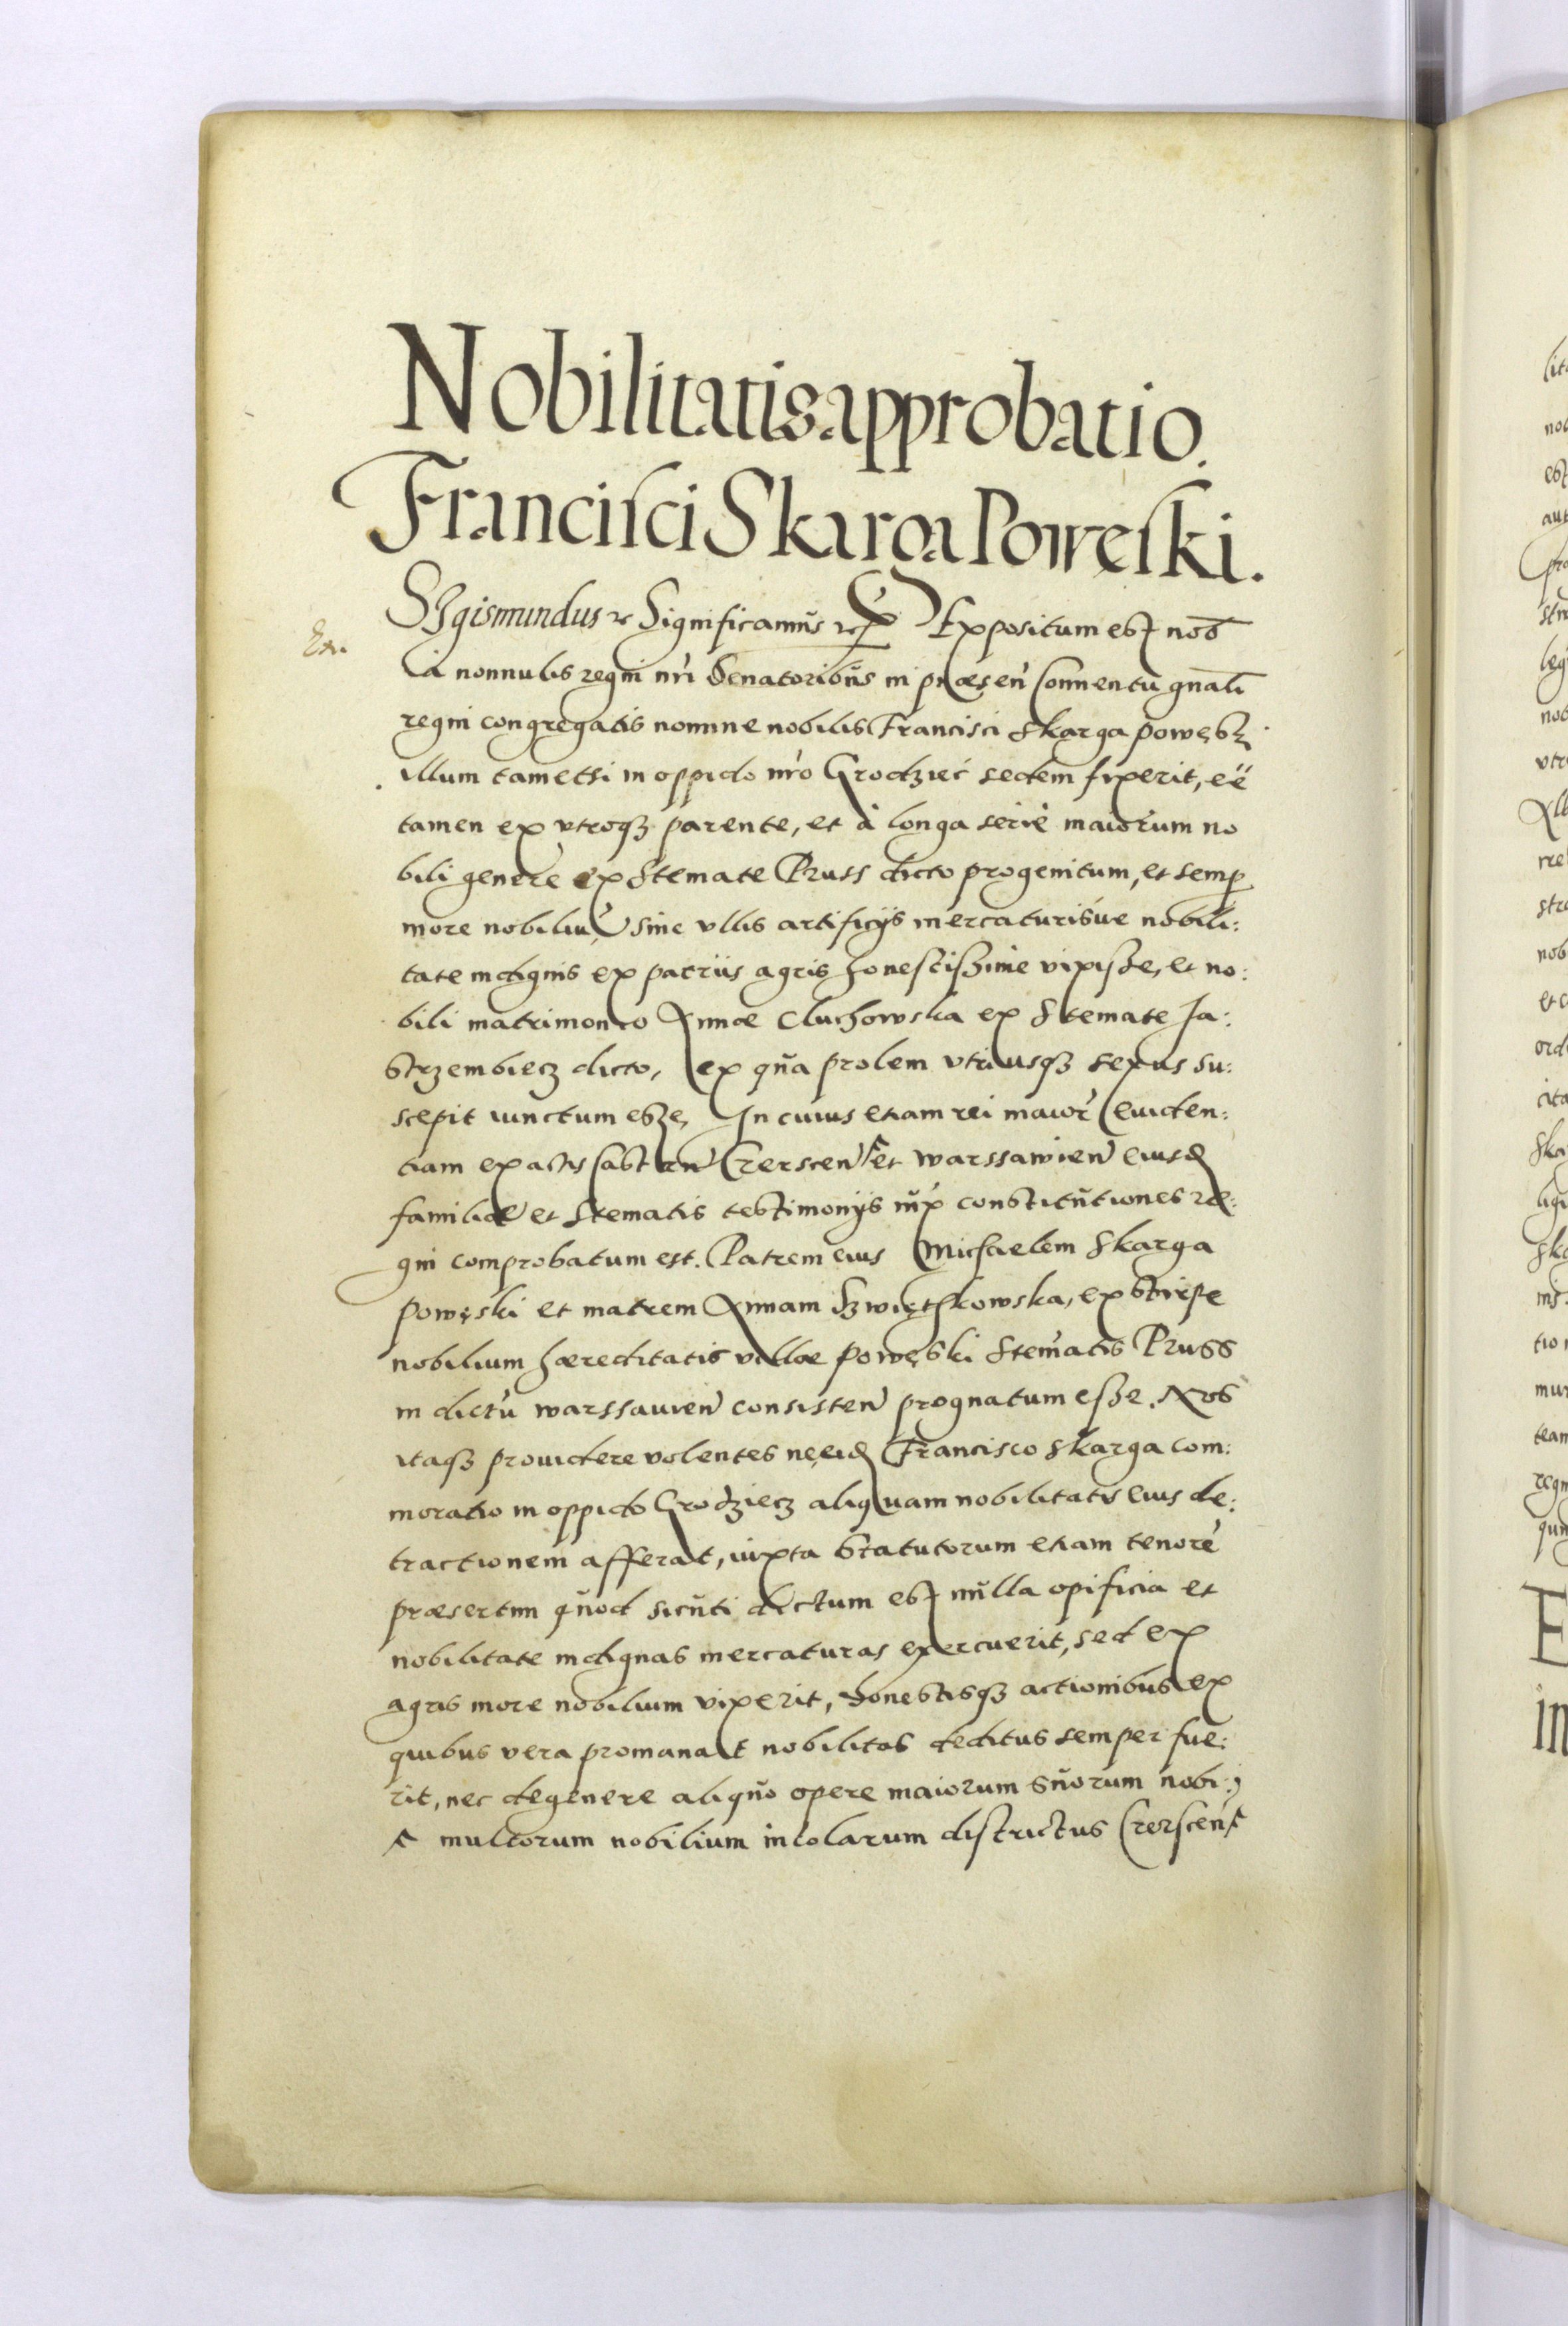 Nobilitatis approbatio
Francisci Skarga Powęski.
Sygismundus &c Significamus &c Expositum est nob̄
Ex.
a nonnulis regni nr̃i Senatoribus in praesen̄ Conventu gnāli
regni congregatis nomine nobilis Francisci Skarga Powęsky
illum tametsi in oppido nr̃o Grodziec sedem fixerit, eē
tamen ex utroqȝ parente, et à longa serie maiorum no
bili genere ex Stemate Pruss dicto progenitum, et semp
more nobiliū sine ullis artificijs mercaturisue nobili:
tate indignis ex patriis agris honestissime vixisse, et no:
bili matrimonio Annae Cluchowska ex Stemate Ja:
strzembiecz dicto, ex qua prolem utriusqȝ sexus su:
scepit iunctum esse, In cuius etiam rei maiorē euiden:
tiam ex actis Castren̄ Czerscen̄ et Warssawien̄ eiusd
familiae et Stematis testimonijs iux̄ constitutiones re:
gni comprobatum est. Patrem eius Michaelem Skarga
Powęski et matrem Annam Szwiętkowska, ex stirpe
nobilium haereditatis villae Powęski Stematis Pruss
in dictū Warssauien̄ consisten̄ prognatum esse. Nos
itaqȝ prouidere volentes ne eid Francisco Skarga com:
moratio in oppido Grodziecz aliquam nobilitatis eius de:
tractionem afferat, iuxta Statutorum etiam tenorē
praesertim quod sicuti dictum est nulla opificia et
nobilitate indignas mercaturas exercuerit, sed ex
agris more nobilium vixerit, honestisqȝ actionibus ex
quibus vera promanat nobilitas deditus semper fue:
rit, nec degenere aliquo opere maiorum suorum nobi:
multorum nobilium incolarum districtus Czerscen̄